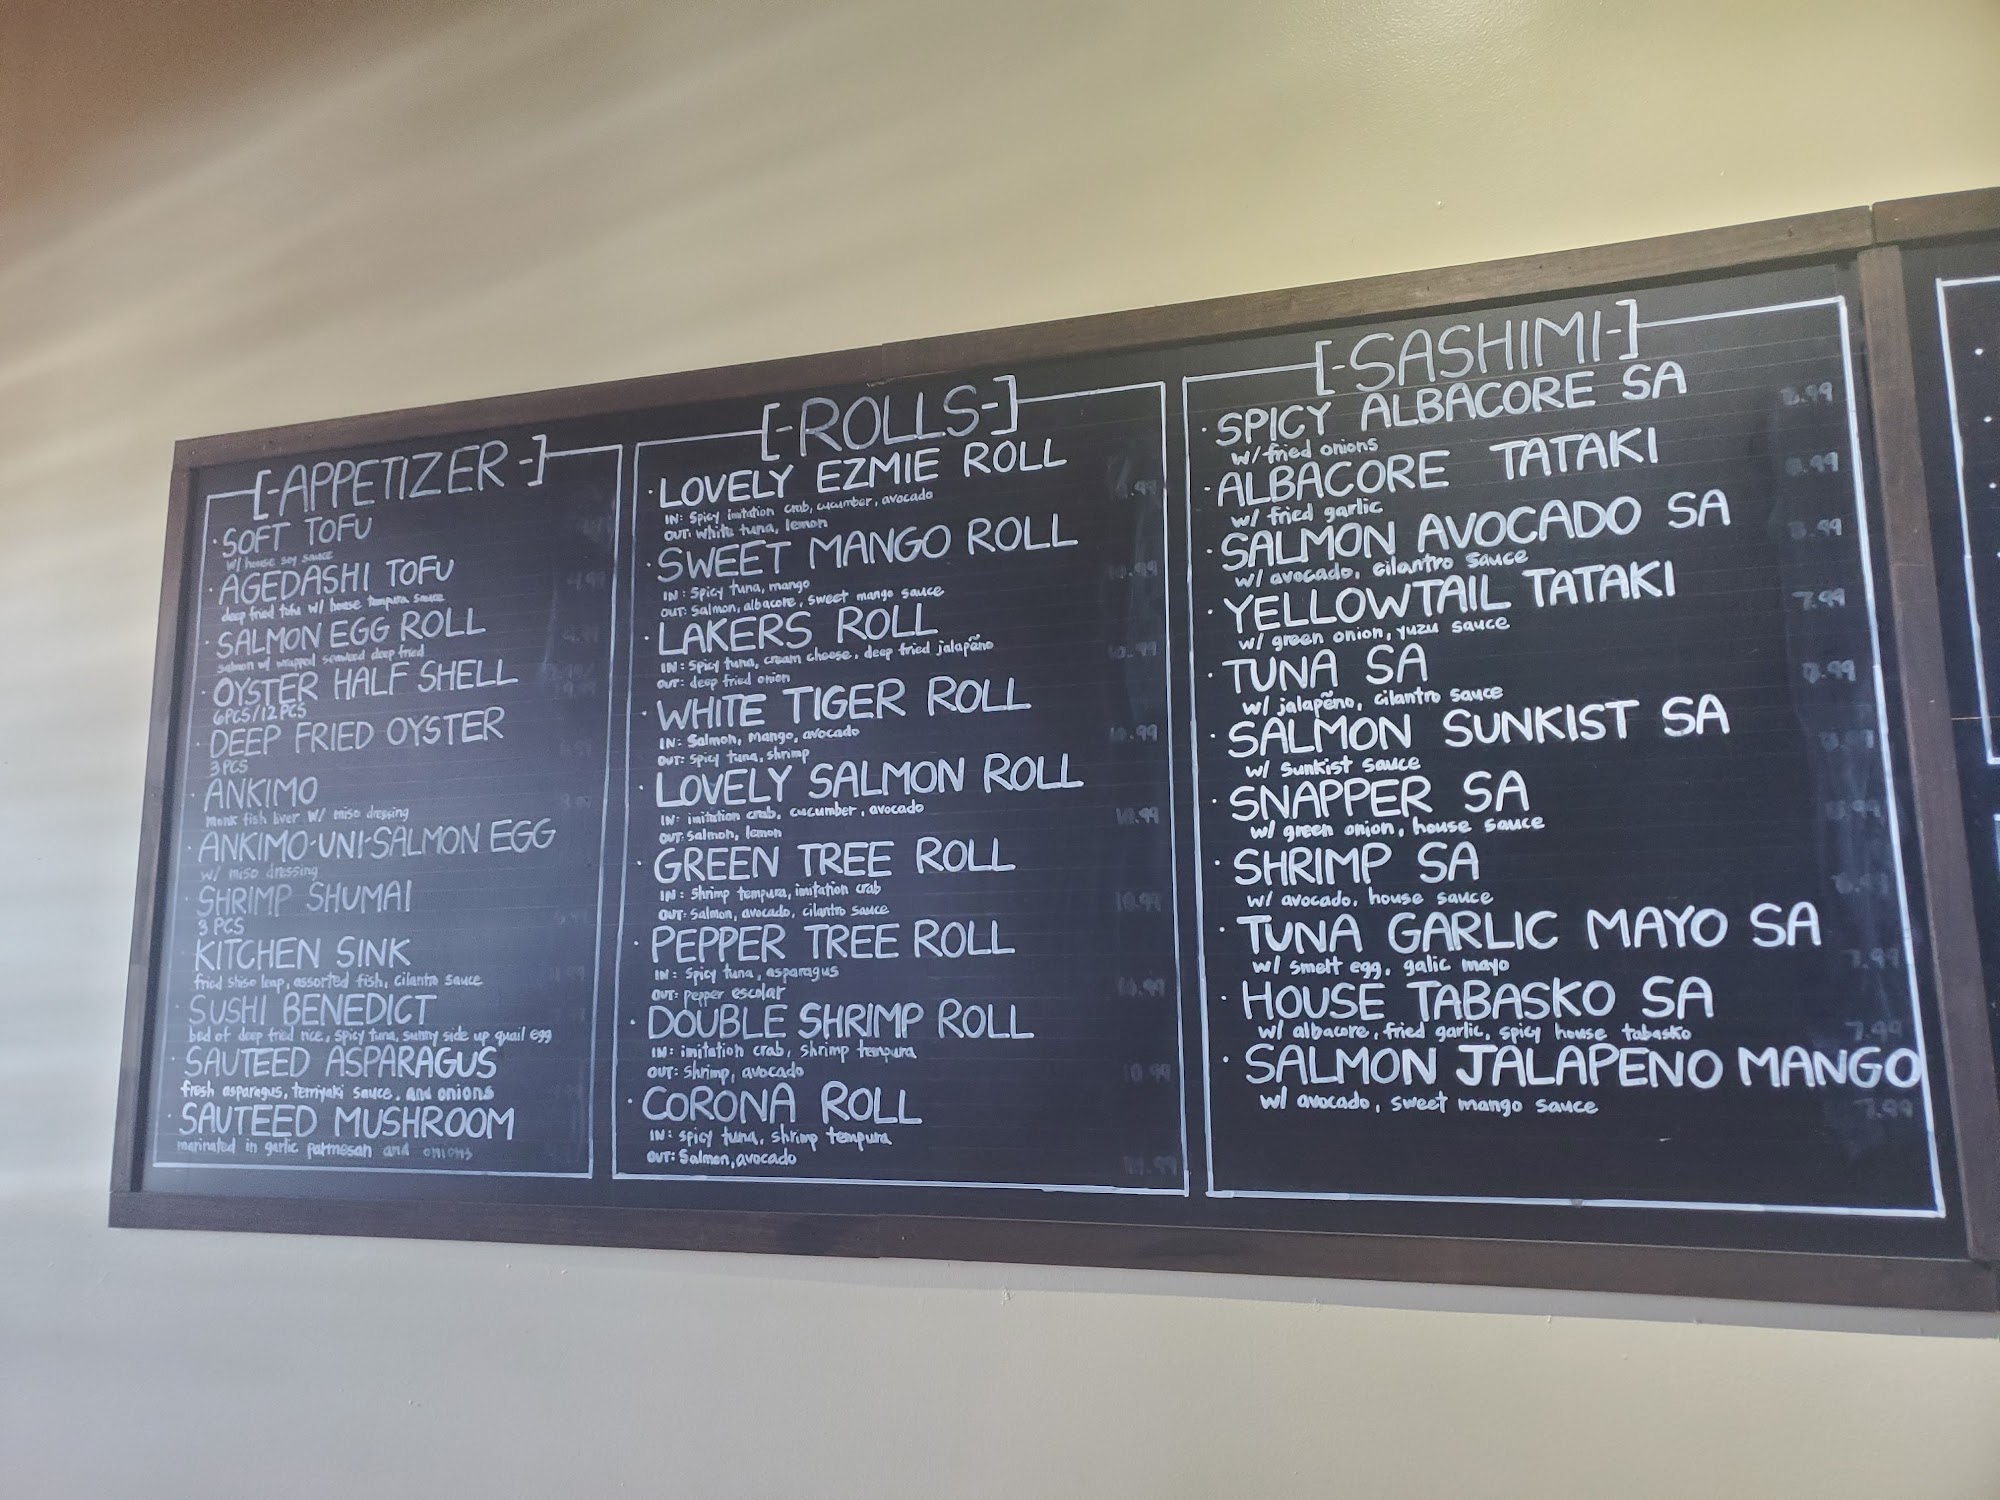 [-APPETIZER-]
· SOFT TOFU
w/ house soy sauce
· AGEDASHI TOFU
deep fried tofu w/ house tempura sauce
· SALMON EGG ROLL
salmon w/ wrapped seaweed deep fried
· OYSTER HALF SHELL
6PCS/12PCS
· DEEP FRIED OYSTER
3PCS
· ANKIMO
monk fish liver w/ miso dressing
· ANKIMO-UNI-SALMON EGG
w/ miso dressing
· SHRIMP SHUMAI
3 PCS
· KITCHEN SINK
fried shiso leap, assorted fish, cilantro sauce
· SUSHI BENEDICT
bed of deep fried rice, spicy tuna, sunny side up quail egg
· SAUTEED ASPARAGUS
fresh asparagus, terriyaki sauce, and onions
· SAUTEED MUSHROOM
marinated in garlic parmesan and onions
[-ROLLS-]
· LOVELY EZMIE ROLL
IN: Spicy imitation crab, cucumber, avocado
OUT: White tuna, lemon
· SWEET MANGO ROLL
IN: Spicy tuna, mango
OUT: Salmon, albacore, sweet mango sauce
· LAKERS ROLL
IN: Spicy tuna, cream cheese, deep fried jalapaño
OUT: deep fried onion
· WHITE TIGER ROLL
IN: Salmon, Mango, avocado
OUT: Spicy tuna, shrimp
· LOVELY SALMON ROLL
IN: imitation crab, cucumber, avocado
OUT: Salmon, lemon
· GREEN TREE ROLL
IN: Shrimp tempura, imitation crab
OUT: Salmon, avocado, cilantro sauce
· PEPPER TREE ROLL
IN: Spicy tuna, asparagus
OUT: pepper escolar
· DOUBLE SHRIMP ROLL
IN: imitation crab, shrimp tempura
OUT: Shrimp, avocado
10.99
· CORONA ROLL
IN: spicy tuna, shrimp tempura
OUT: Salmon, avocado
[-SASHIMI-]
· SPICY ALBACORE SA
w/ fried onions
· ALBACORE TATAKI
w/ fried garlic
· SALMON AVOCADO SA
w/ avocado, cilantro sauce
· YELLOWTAIL TATAKI 7.99
w/ green onion, yuzu sauce
· TUNA SA
w/ jalapeño, cilantro sauce
· SALMON SUNKIST SA
w/ sunkist sauce
· SNAPPER SA
w/ green onion, house sauce
· SHRIMP SA
w/ avocado, house sauce
· TUNA GARLIC MAYO SA
w/ smelt egg, galic mayo 7.99
· HOUSE TABASKO SA
w/ albacore, fried garlic, spicy house tabasko 7.99
· SALMON JALAPENO MANGO
w/ avocado, sweet mango sauce 7.99